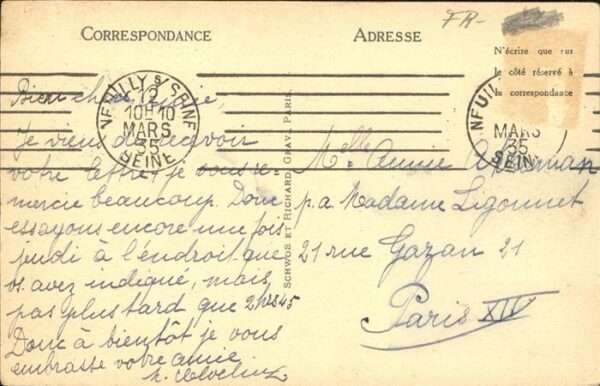 FR-
CORRESPONDANCE
ADRESSE
N'écrire que sur
le côté réservé à
la correspondance
NEUILLY S/ SEINE
12
10H10
MARS
35
SEINE
NEUILL
MARS
35
SEINE
Bien chère
Je viens de recevoir
votre lettre, je vous re-
mercie beaucoup. Donc
essayons encore une fois
jeudi à l'endroit que
vs. avez indiqué, mais
pas plus tard que
Donc à bientôt je vous
embrasse votre amie
SCHWOB ET RICHARD, GRAV. PARIS.
Melle Annie
p.a. Madame Ligonnet
21 rue Gazan 21
Paris XIV